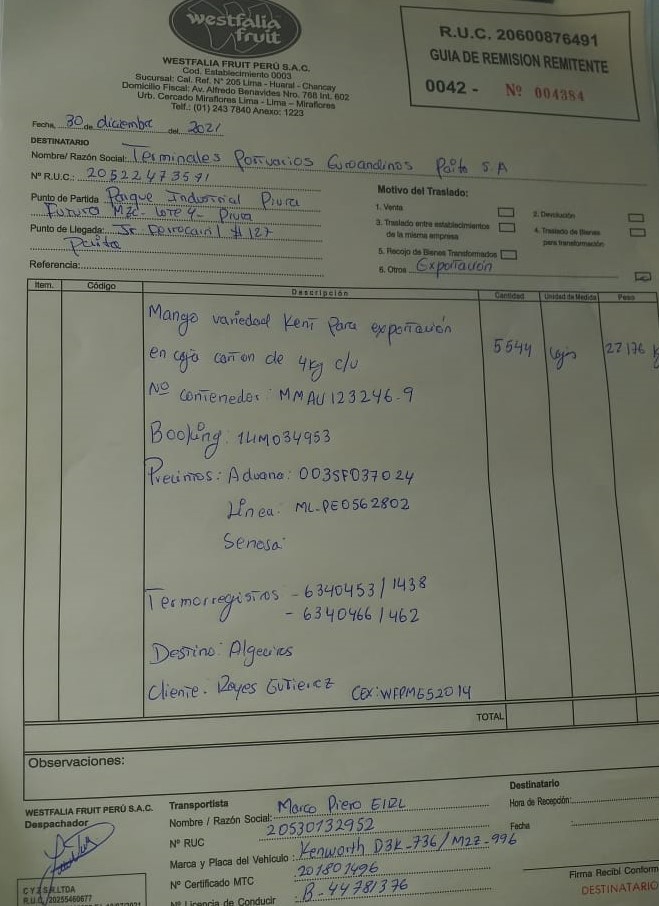 westfalia
fruit
WESTFALIA FRUIT PERÚ S.A.C.
Cod. Establecimiento 0003
Sucursal: Cal. Ref. N° 205 Lima - Huaral - Chancay
Domicilio Fiscal: Av. Alfredo Benavides Nro. 768 Int. 602
Urb. Cercado Miraflores Lima - Lima - Miraflores
Telf.: (01) 243 7840 Anexo: 1223
R.U.C. 20600876491
GUIA DE REMISION REMITENTE
0042 - Nº 004384
Fecha, 30 de diciembre del, 2021
DESTINATARIO
Nombre/ Razón Social: Terminales Portuarios Euroandinos Paita S.A
N° R.U.C.: 20522473571
Punto de Partida Parque Industrial Piura
Futura Mzc- Lote 4- Piura
Punto de Llegada: Jr. Ferrocarril # 127
Paita
Referencia:
Motivo del Traslado:
1. Venta
2. Devolución
3. Traslado entre establecimientos
de la misma empresa
4. Traslado de Bienes
para transformación
5. Recojo de Bienes Transformados
6. Otros Exportación
Item. Código Descripción Cantidad Unidad de Medida Peso
Mango variedad Kent Para exportación
en caja carton de 4kg c/u 5544 Cajas 22176 k
Nº contenedor: MMAU 123246-9
Booking: 1LIM034953
Precintos: Aduana: 003SF037024
Línea: ML-PE0562802
Senasa:
Termorregistros - 6340453 / 1438
- 6340466 / 462
Destino: Algeciras
Cliente. Reyes Gutierrez CEX: WFPMG52014
TOTAL
Observaciones:
WESTFALIA FRUIT PERÚ S.A.C.
Despachador
CYZ SRLTDA
R.U.C. 20255460677
Transportista
Nombre / Razón Social: Marco Piero EIRL
N° RUC 20530132952
Marca y Placa del Vehiculo: Kenworth D3K-736 / M2Z-996
N° Certificado MTC 201801496
N° Licencia de Conducir B-44781376
Destinatario
Hora de Recepción:
Fecha
Firma Recibi Conform
DESTINATARIO